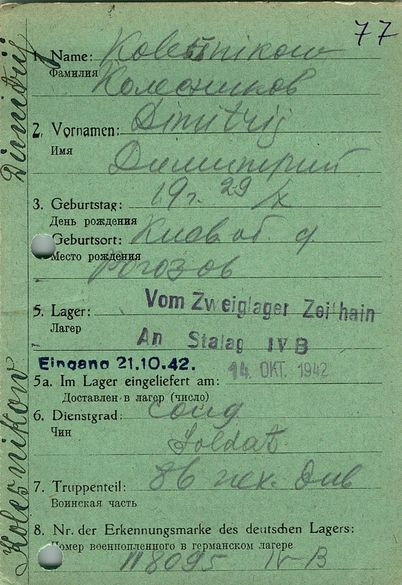 77
Kolesnikow Dimitrij
1. Name: Kolesnikow
Фамилия Колесников
2. Vornamen: Dimitrij
Имя
Димитрий
3. Geburtstag: 19 г. 29/X
День рождения
Geburtsort: Киев об. д
Место рождения
Рогозов
5. Lager: Vom Zweiglager Zeithain
Лагер
An Stalag IVB
Eingang 21.10.42. 14. OKT. 1942
5a. Im Lager eingeliefert am:
Доставлен в лагор (число)
6. Dienstgrad: солд
Чин
Soldat
7. Truppenteil: 86 пех. див
Воинская часть
8. Nr. der Erkennungsmarke des deutschen Lagers:
Номер военнопленного в германском лагере
118095 IV-B